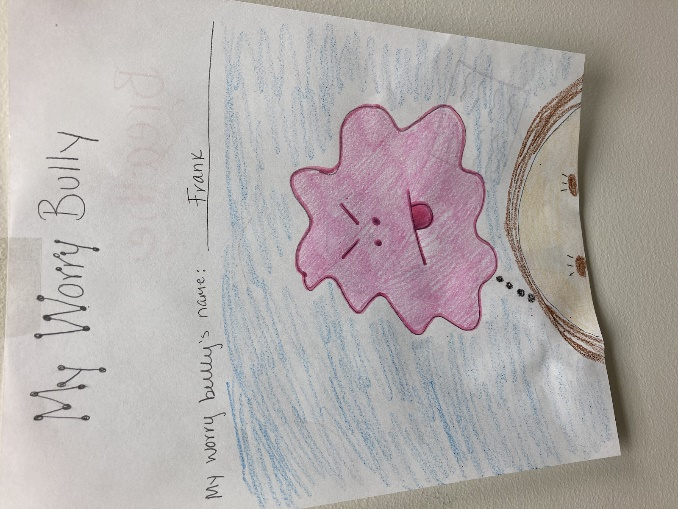 My Worry Bully
My worry bully's name: Frank